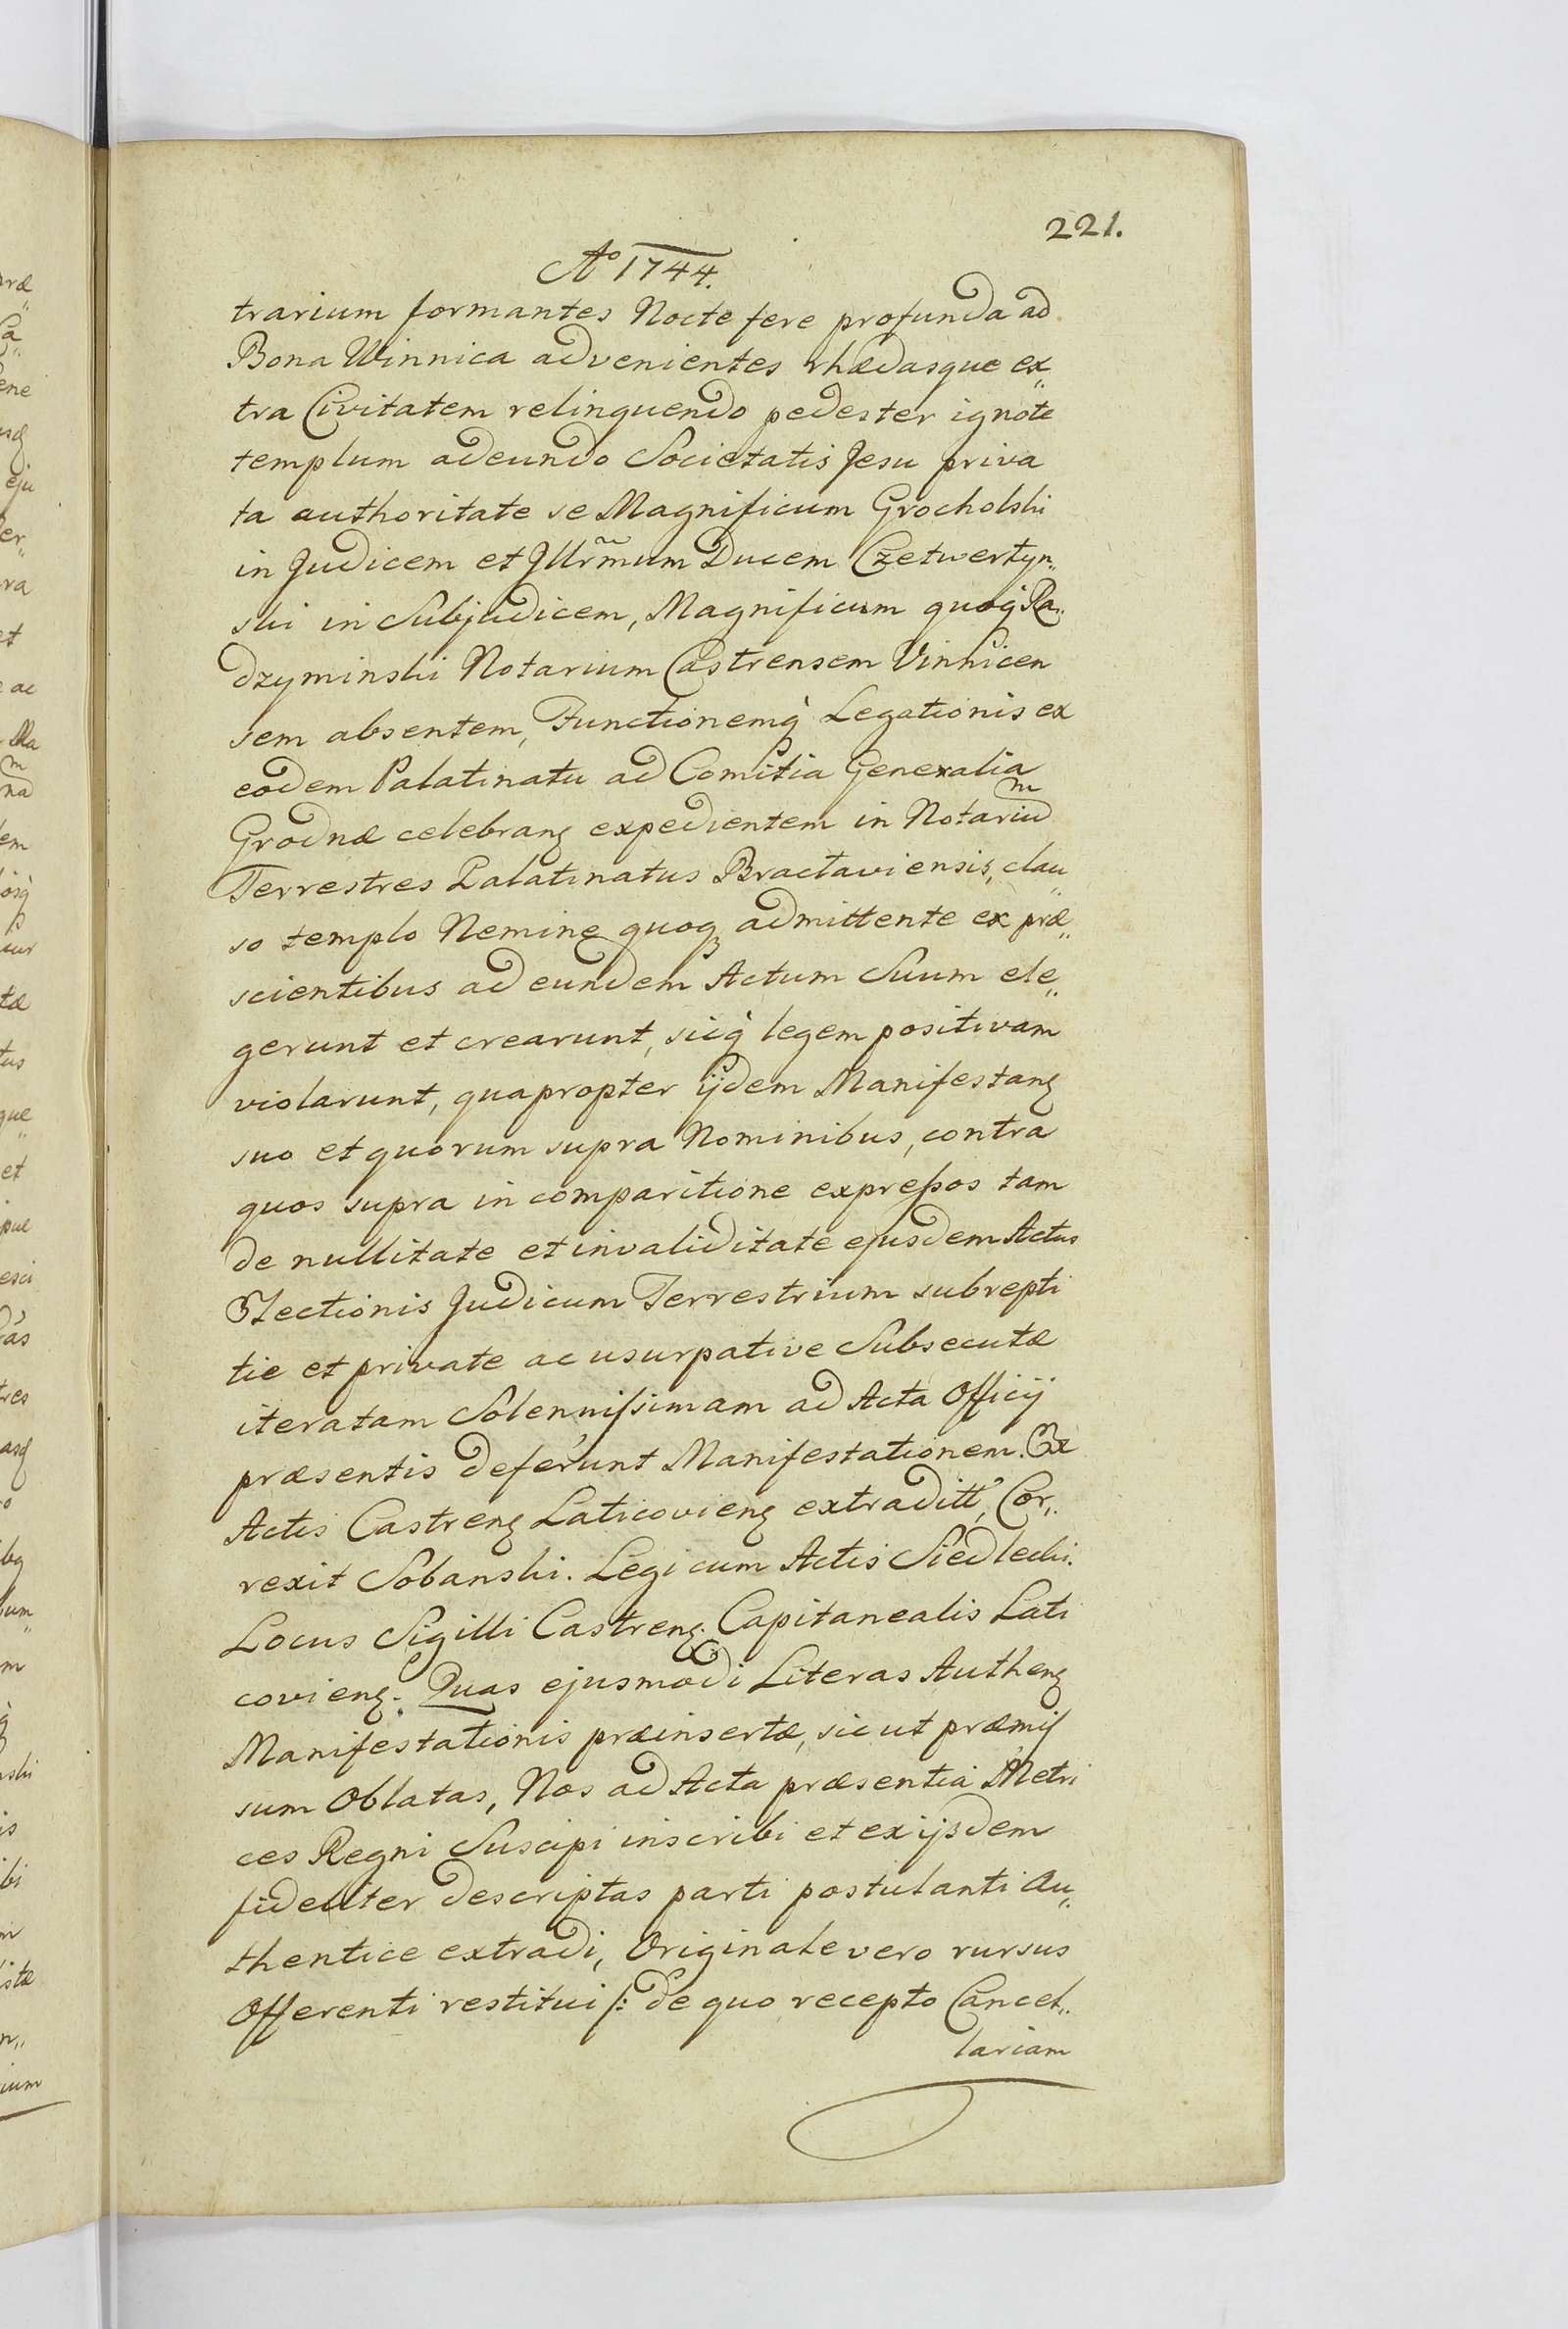 221.
Aº 1744.
trarium formantes Nocte fere profunda ad
Bona Winnica advenientes rhædasque ex„
tra Civitatem relinquendo pedester ignote
templum adeundo Societatis Jesu priva
ta authoritate se Magnificum Grocholski
in Judicem et Jllrm̃um Ducem Czetwertyn„
ski in Subjudicem, Magnificum quoq̀ Ra„
dzyminski Notarium Castrensem Vinnicen
sem absentem, Functionemq̀ Legationis ex
eodem Palatinatu ad Comitia Generalia
Grodnæ celebranȝ expedientem in Notariuᵐ
Terrestres Palatinatus Bractaviensis, clau„
so templo Nemine quoqȝ admittente ex præ„
scientibus ad eundem Actum Suum ele„
gerunt et crearunt, sicq̀ legem positivam
violarunt, quapropter ijdem Manifestanȝ
suo et quorum supra Nominibus, contra
quos supra in comparitione expreſsos tam
de nullitate et invaliditate ejusdem Actus
Electionis Judicum Terrestrium subrepti
tie et private ac usurpative Subsecutæ
iteratam Solenniſsimam ad Acta Officij
præsentis deferunt Manifestationem. Ex
Actis Castrenȝ Laticovienȝ extraditt, Cor„
rexit Sobanski. Legi cum Actis Siedlecki.
Locus Sigilli Castrenȝ. Capitanealis Lati
covienȝ. Quas ejusmodi Literas Authenȝ
Manifestationis præinsertæ, sicut præmiſ
sum Oblatas, Nos ad Acta præsentia Metri
ces Regni Suscipi inscribi et ex ijsdem
fideliter descriptas parti postulanti Au„
thentice extradi, Originale vero rursus
Offerenti restitui /: de quo recepto Cancel„
lariam